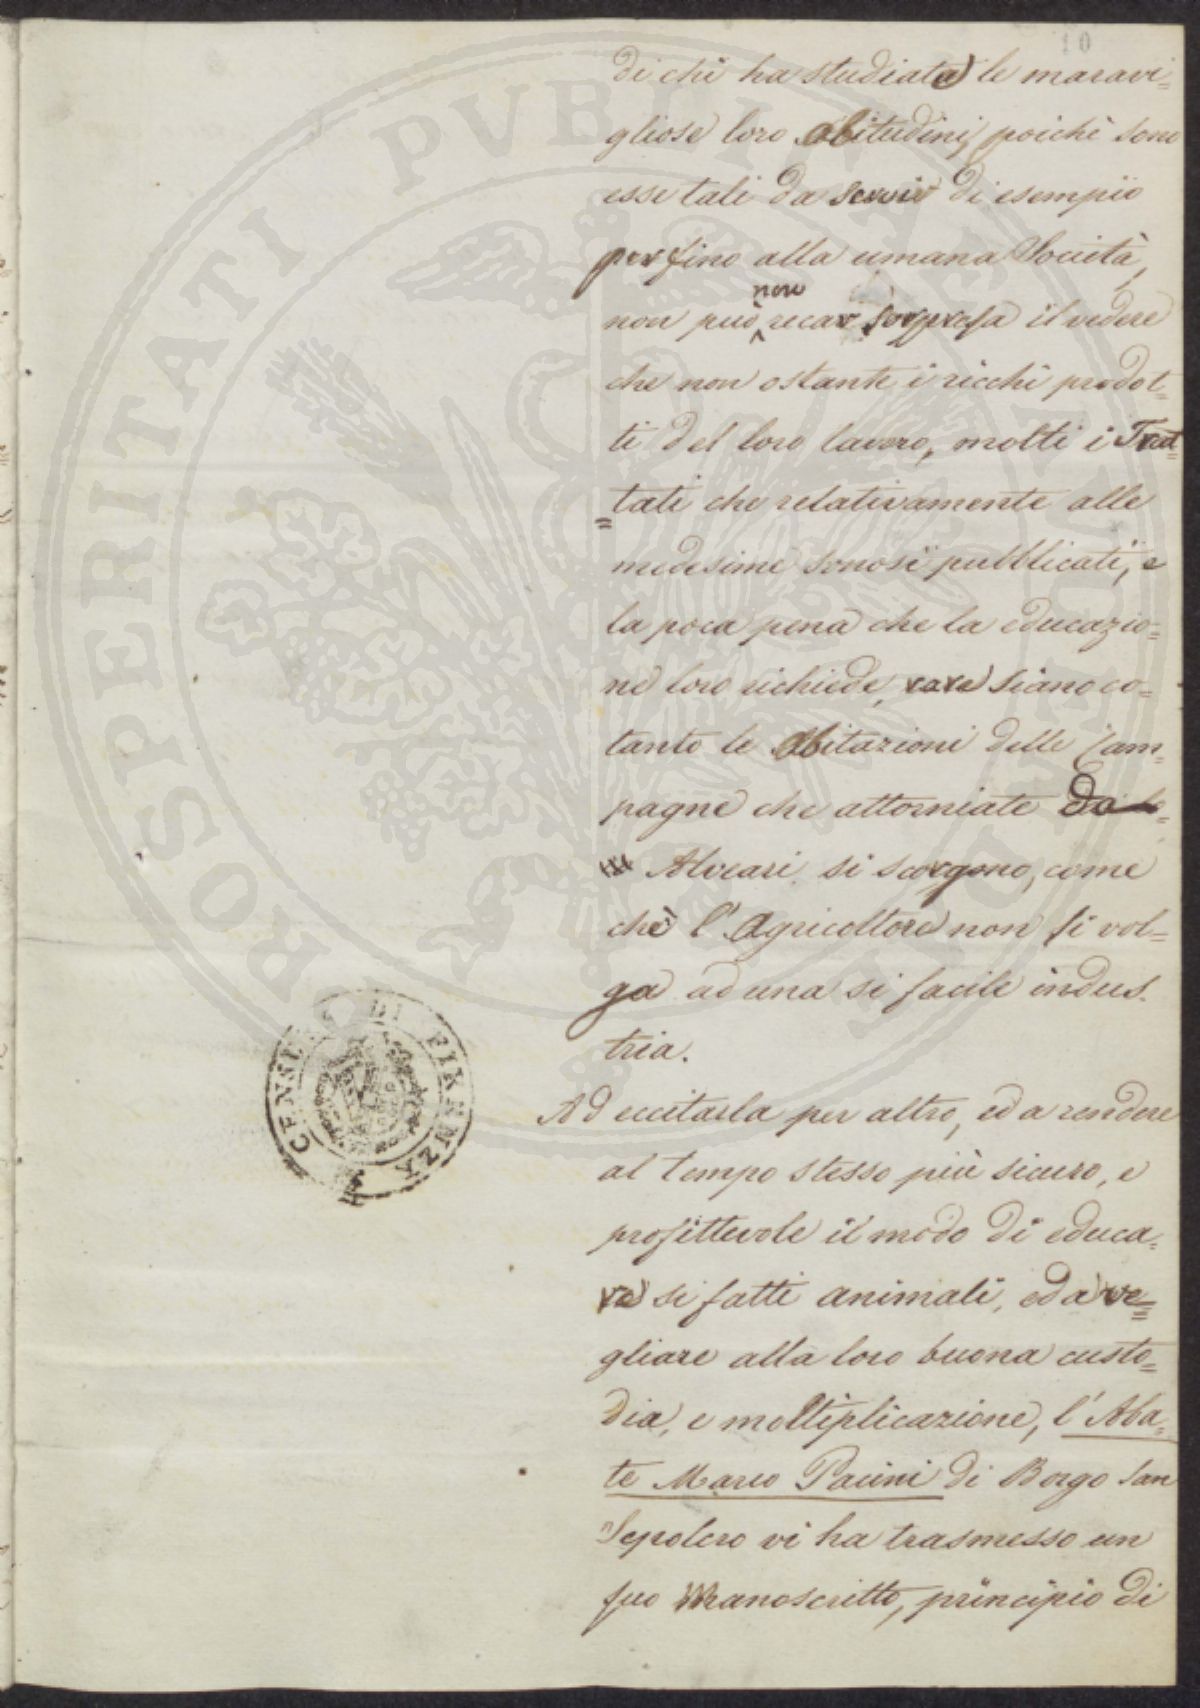 10
di chi ha studiato le maravi=
gliose loro abitudini, poichè sono
esse tali da servir di esempio
perfino alla umana Società,
non
non può recar sorpresa il vedere
che non ostante i ricchi prodot=
ti del loro lavoro, molti i Trat=
=tati che relativamente alle
medesime sonosi pubblicati, e
la poca pena che la educazio=
ne loro richiede, rare siano co=
tanto le abitazioni delle Cam=
pagne che attorniate da
Alveari si scorgono, come
chè l'Agricoltore non si vol=
ga ad una si facile indus.
tria.
Ad eccitarla per altro, ed a rendere
al tempo stesso più sicuro, e
profittevole il modo di educa=
re si fatti animali, ed a ve=
gliare alla loro buona custo=
dia, e moltiplicazione, l'Aba=
te Marco Pacini di Borgo San
Sepolcro vi ha trasmesso un
suo Manoscritto, principio di
DI FIRENZE
PROSPERITATI PVBLICAE